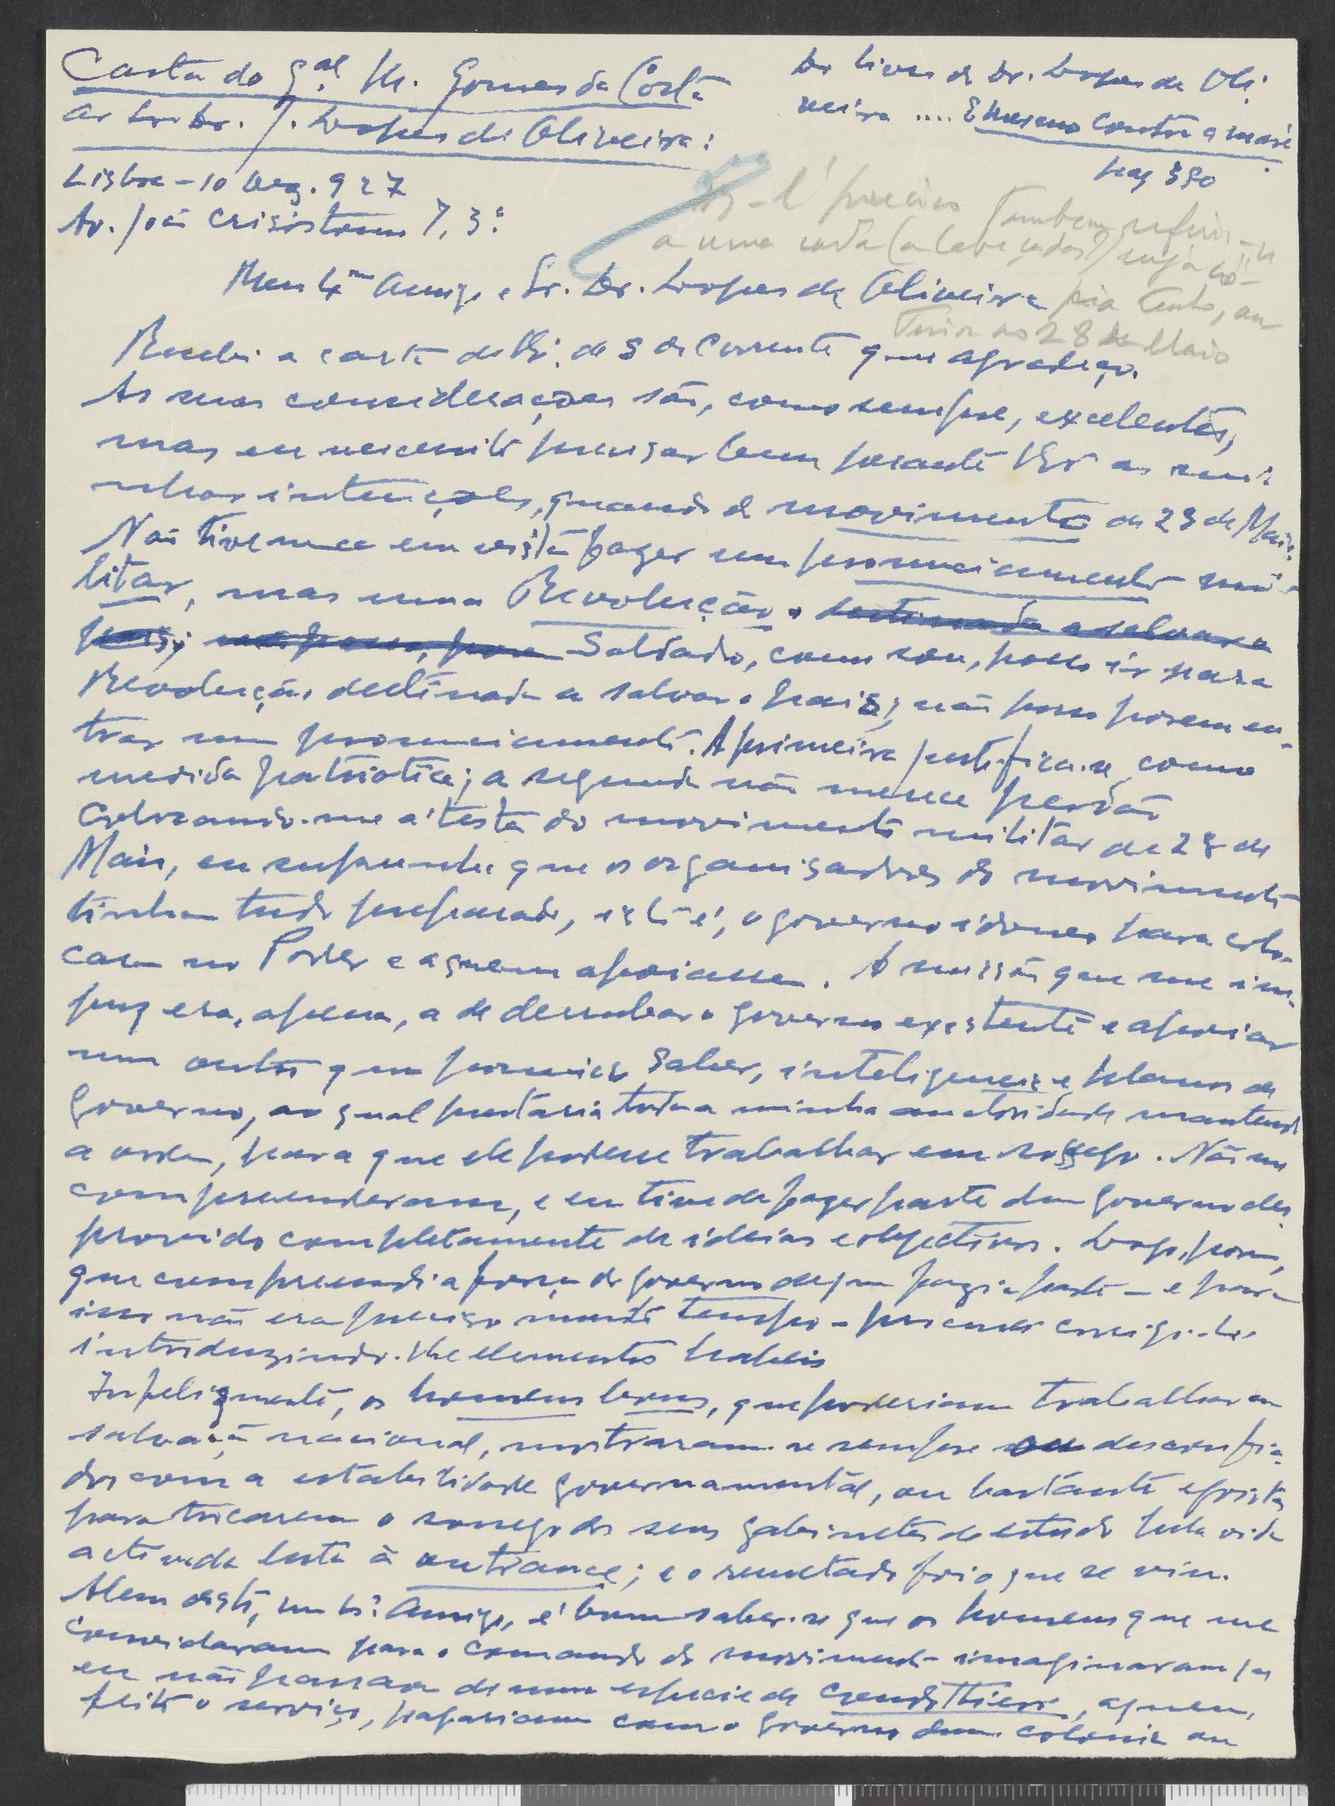 Carta do Gal. M. Gomes da Costa
ao Snr. Dr. J. Lopes de Oliveira:
Do livro do Dr. Lopes de Oli
veira .... E mesmo contra a maré
pag 350
Lisboa - 10 Dez. 927
Av. João Crisóstomo 7, 3º
é preciso também referir-
a uma carta
pia tenho, an
terior ao 28 de Maio
Meu Exmo Amigo e Sr. Dr. Lopes de Oliveira
Recebi a carta de V. Ex. de 8 do corrente que agradeço.
As suas considerações são, como sempre, excelentes,
mas eu necessito precisar bem perante V. Ex. as mi
nhas intenções, quando do movimento de 28 de Maio.
Não tive nunca em vista fazer um pronunciamento mi-
litar, mas uma Revolução destinada a salvar o
país; não posso, porem Soldado, como sou, posso ir para
Revolução destinada a salvar o paiz; não posso porem en-
trar num pronunciamento. A primeira justifica-se como
medida patriotica; a segunda não merece perdão
Colocando-me á testa do movimento militar de 28 de
Maio, eu supunha que os organisadores do movimento
tinham tudo preparado, isto é, o governo idoneo para colo-
carem no Poder e a quem apoiassem. A missão que me im-
puz era, apenas, a de derrubar o governo existente e apoiar
um outro que possuisse saber, inteligencia e planos de
governo, ao qual prestaria toda a minha autoridade mantendo
a ordem, para que ele podesse trabalhar em sossego. Não me
compreenderam, e eu tive de fazer parte dum governo des-
provido completamente de ideias e objectivos. Logo, porem,
que compreendi a força do governo de que fazia parte - e para
isso não era preciso muito tempo - procurei corrigi-lo
introduzindo-lhe elementos habeis
Infelizmente, os homens bons, que poderiam trabalhar na
salvação nacional, mostraram-se sempre ou desconfia-
dos com a estabilidade governamental, ou bastante egoistas
para trocarem o sossego dos seus gabinetes de estudo pela vida
activa da luta à outrance; e o resultado foi o que se viu.
Alem disto, meu bom Amigo, é bom saber-se que os homens que me
convidaram para o comando do movimento imaginaram que
eu não passava de uma especie de condottieri, a quem,
feito o serviço, pagariam com o governo duma colonia ou